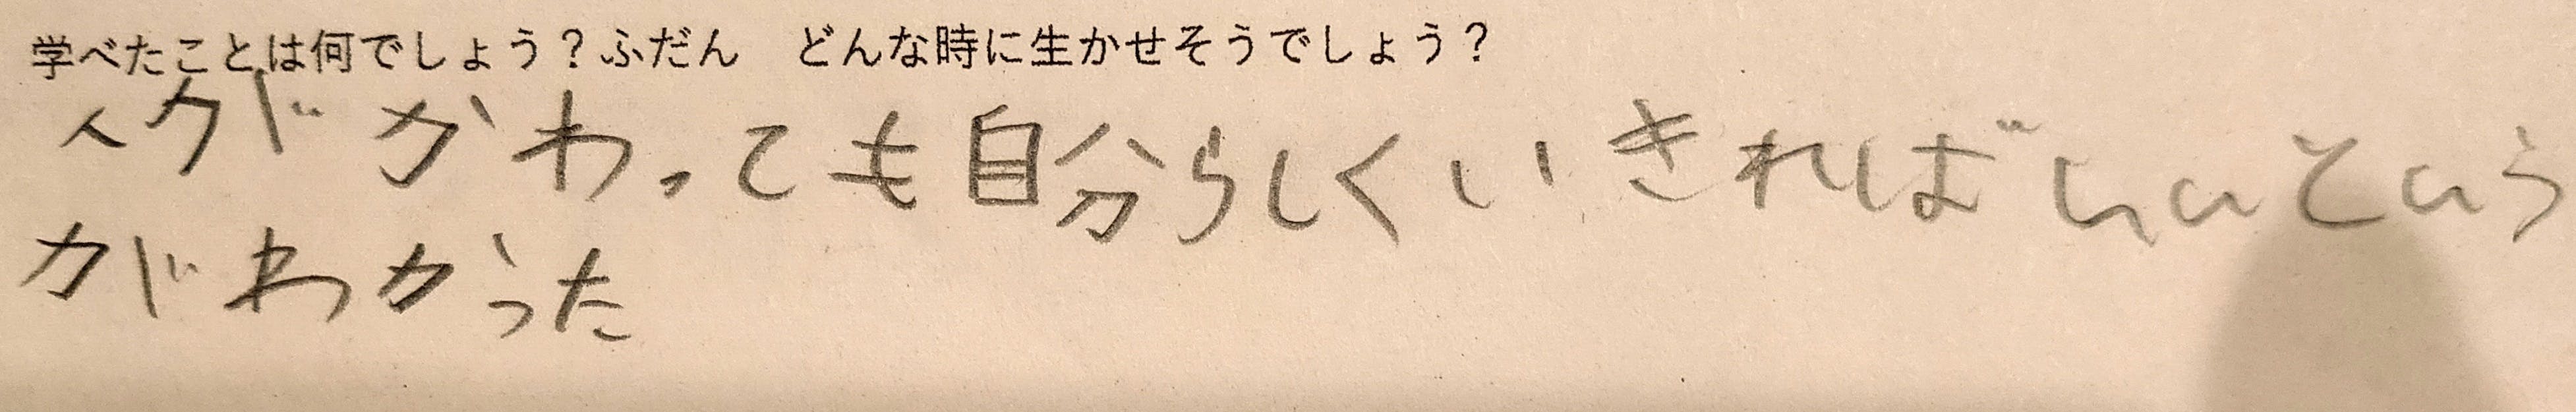 学べたことは何でしょう？ふだん　どんな時に生かせそうでしょう？
かわっても自分らしくいきればいいという
がわかった